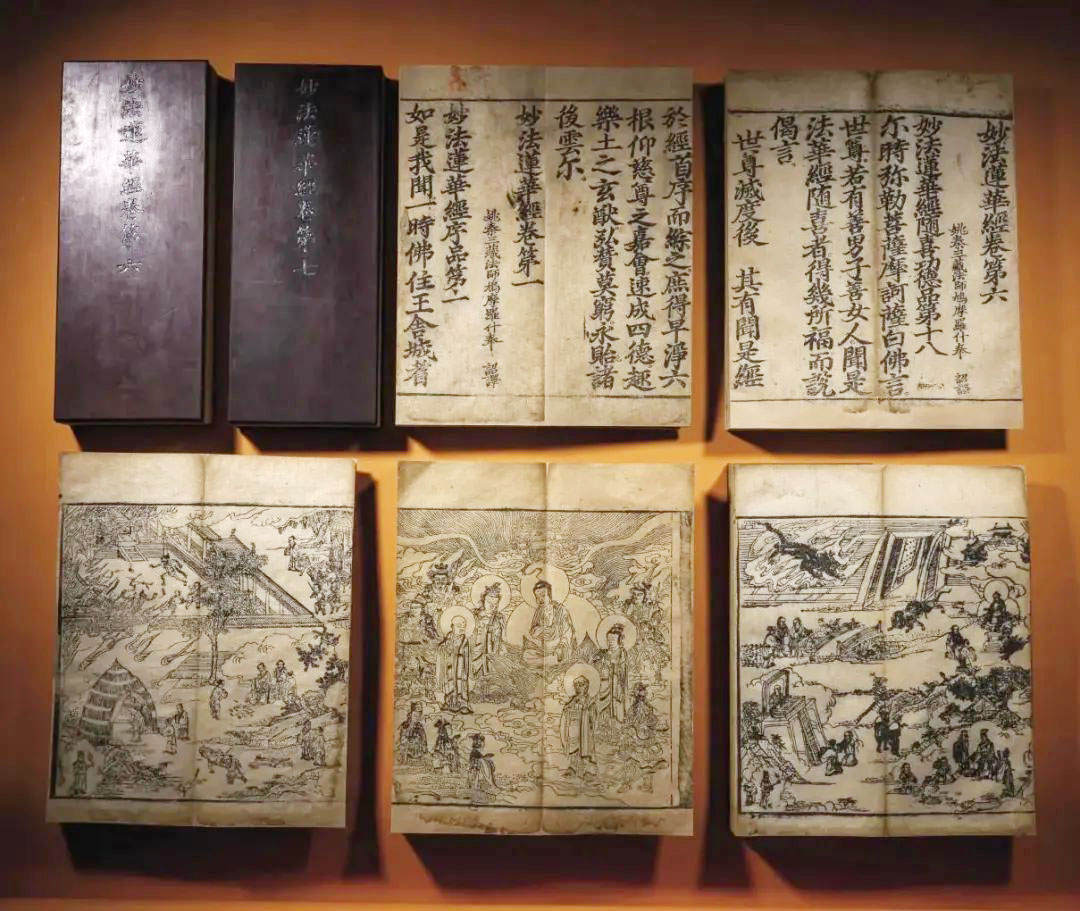 妙法蓮華經卷第六
妙法蓮華經卷第七
於經首序而綜之庶得早淨六
根仰慈尊之嘉會速成四德趣
樂土之玄猷弘贊莫窮永貽諸
後雲尒
妙法蓮華經卷第一
姚秦三藏法師鳩摩羅什奉 詔譯
妙法蓮華經序品第一
如是我聞一時佛住王舍城耆
妙法蓮華經卷第六
姚秦三藏法師鳩摩羅什奉 詔譯
妙法蓮華經隨喜功德品第十八
尒時弥勒菩薩摩訶薩白佛言
世尊若有善男子善女人聞是
法華經隨喜者得幾所福而說
偈言
世尊滅度後 其有聞是經